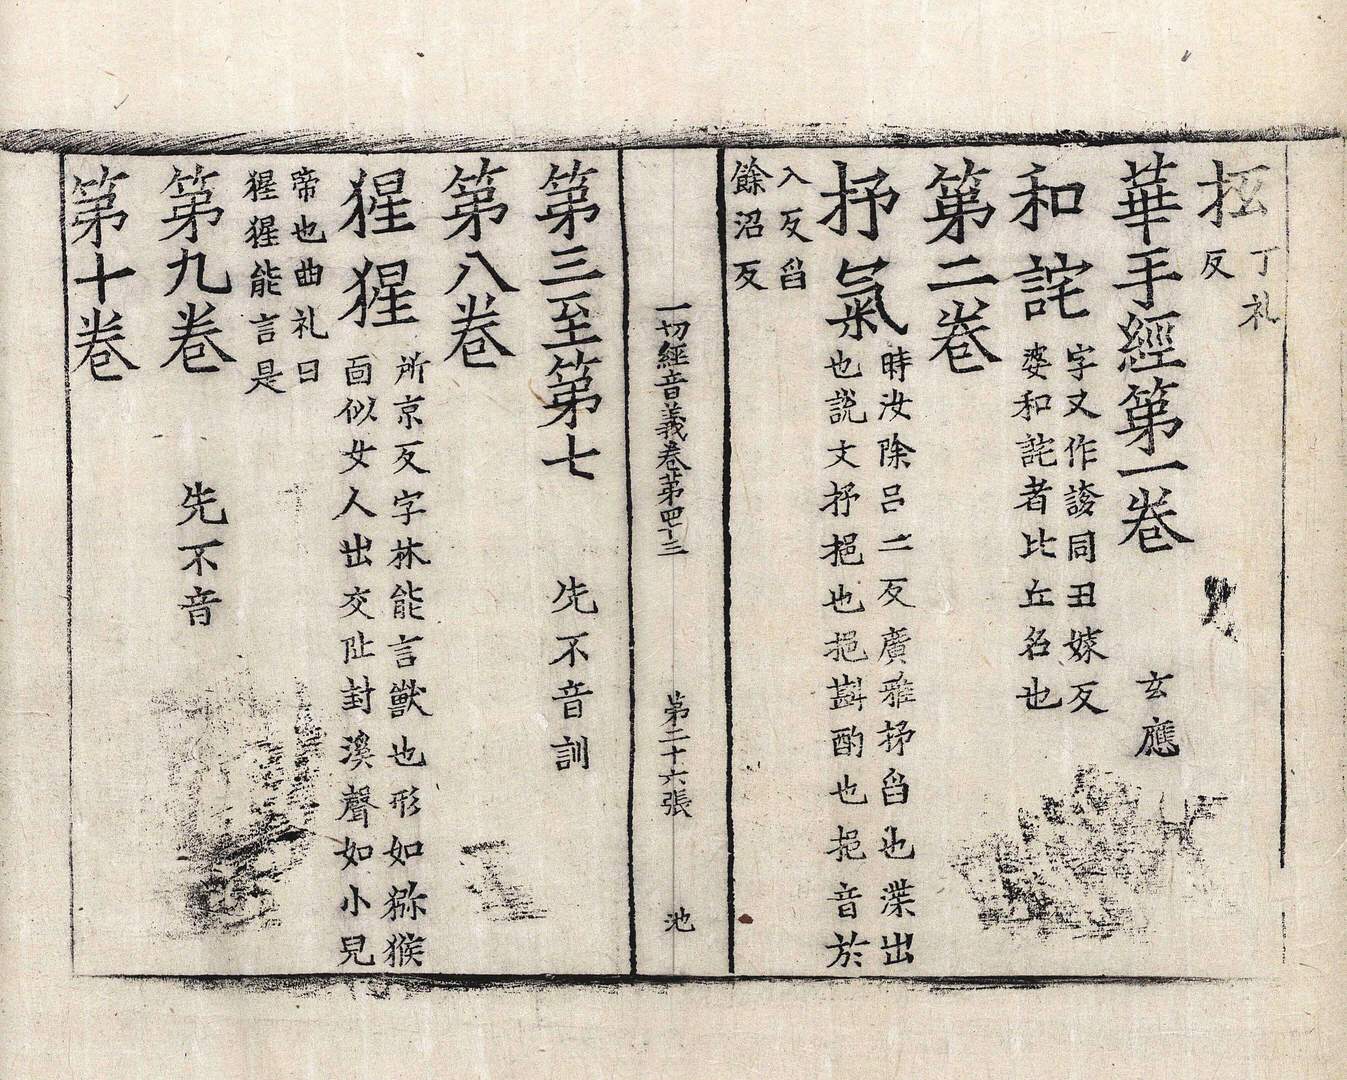 抵丁礼反
華手經第一卷 玄應
和詫字又作諺同丑嫁反婆和詫者比丘名也
第二卷
抒氣時汝除呂二反廣雅抒舀也渫出也說文抒挹也挹㪺酌也挹音於
入反舀餘沼反
一切經音義卷苐四十三 苐二十六張 池
第三至第七 先不音訓
第八卷
猩猩所京反字林能言獸也形如獼猴面似女人出交阯封溪聲如小兒
啼也曲礼曰猩猩能言是
第九卷 先不音
第十卷